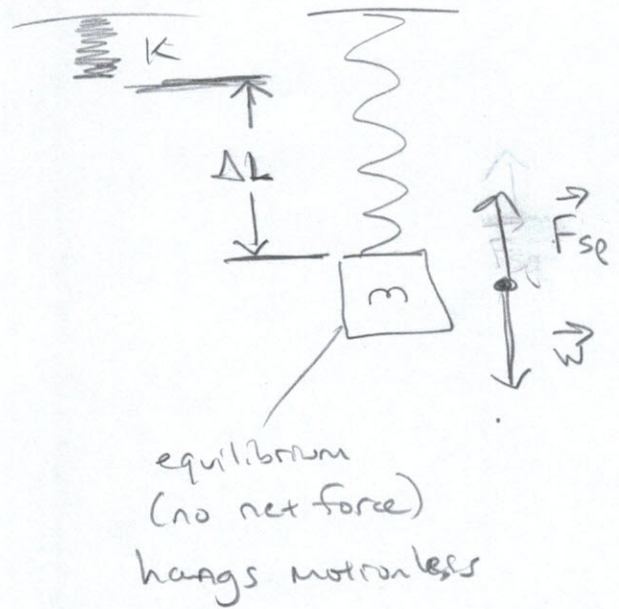 K
ΔL
m
F sp
w
equilibrium
(no net force)
hangs motionless